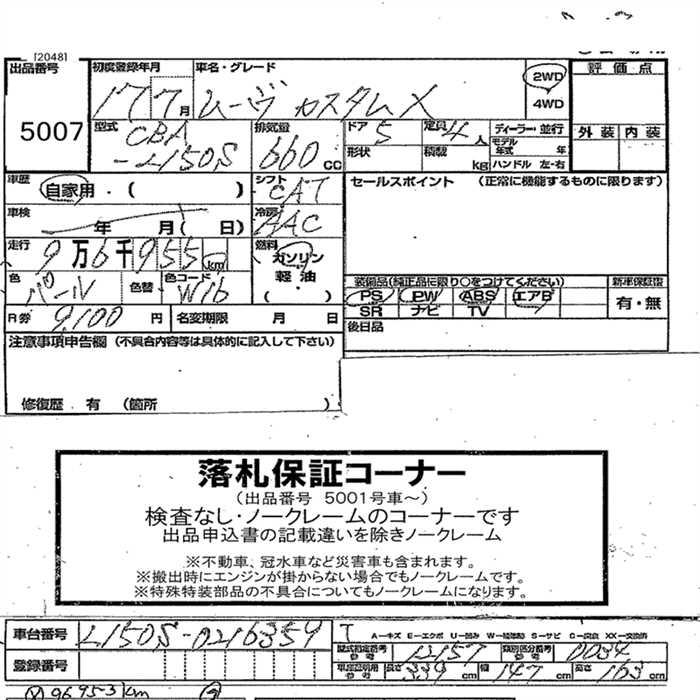 [2048]
出品番号 初度登録年月 車名・グレード 2WD 4WD 評価点
5007 17 7月 ムーヴ カスタムX
型式 CBA-L150S 排気量 660cc ドア 5 定員 4人 ディーラー・並行 外装 内装
形状 積載 kg モデル年式 年 ハンドル 左・右
車歴 自家用・( ) シフト CAT セールスポイント (正常に機能するものに限ります)
車検 年 月( 日) 冷房 AAC
走行 9万6千955km 燃料 ガソリン 軽油 ( ・ )
色 パール 色替 色コード W16 装備品(純正品に限り○をつけてください) 新車保証書
PS PW ABS エアB 有・無
SR ナビ TV
R券 9,100円 名変期限 月 日 後日品
注意事項申告欄 (不具合内容等は具体的に記入して下さい)
修復歴 有 (箇所 )
落札保証コーナー
(出品番号 5001号車~)
検査なし・ノークレームのコーナーです
出品申込書の記載違いを除きノークレーム
※不動車、冠水車など災害車も含まれます。
※搬出時にエンジンが掛からない場合でもノークレームです。
※特殊特装部品の不具合についてもノークレームになります。
車台番号 L150S-0216359 A-キズ E-エクボ U-凹み W-補修跡 S-サビ C-腐食 XX-交換済
型式指定番号 12157 類別区分番号 0034
登録番号 長さ 339cm 幅 147cm 高さ 163cm
96953km